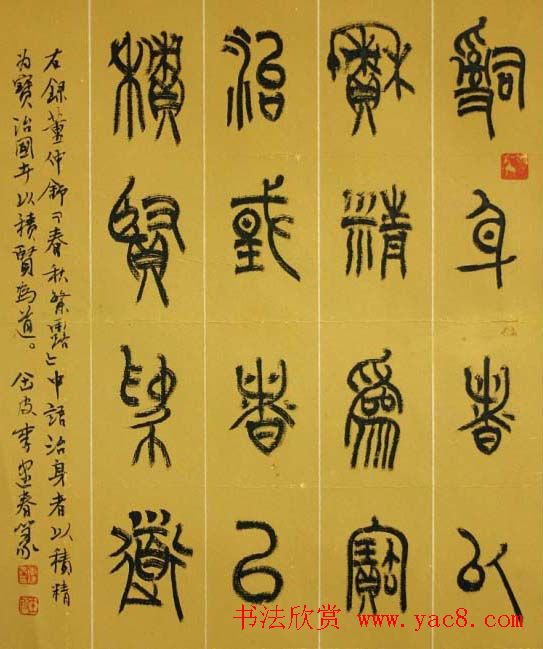 治身者以
積精為寶
治國者以
積賢為道
右錄董仲舒「春秋繁露」中語治身者以積精
为寶治國者以積賢為道。李春篆
书法欣赏 www.yac8.com